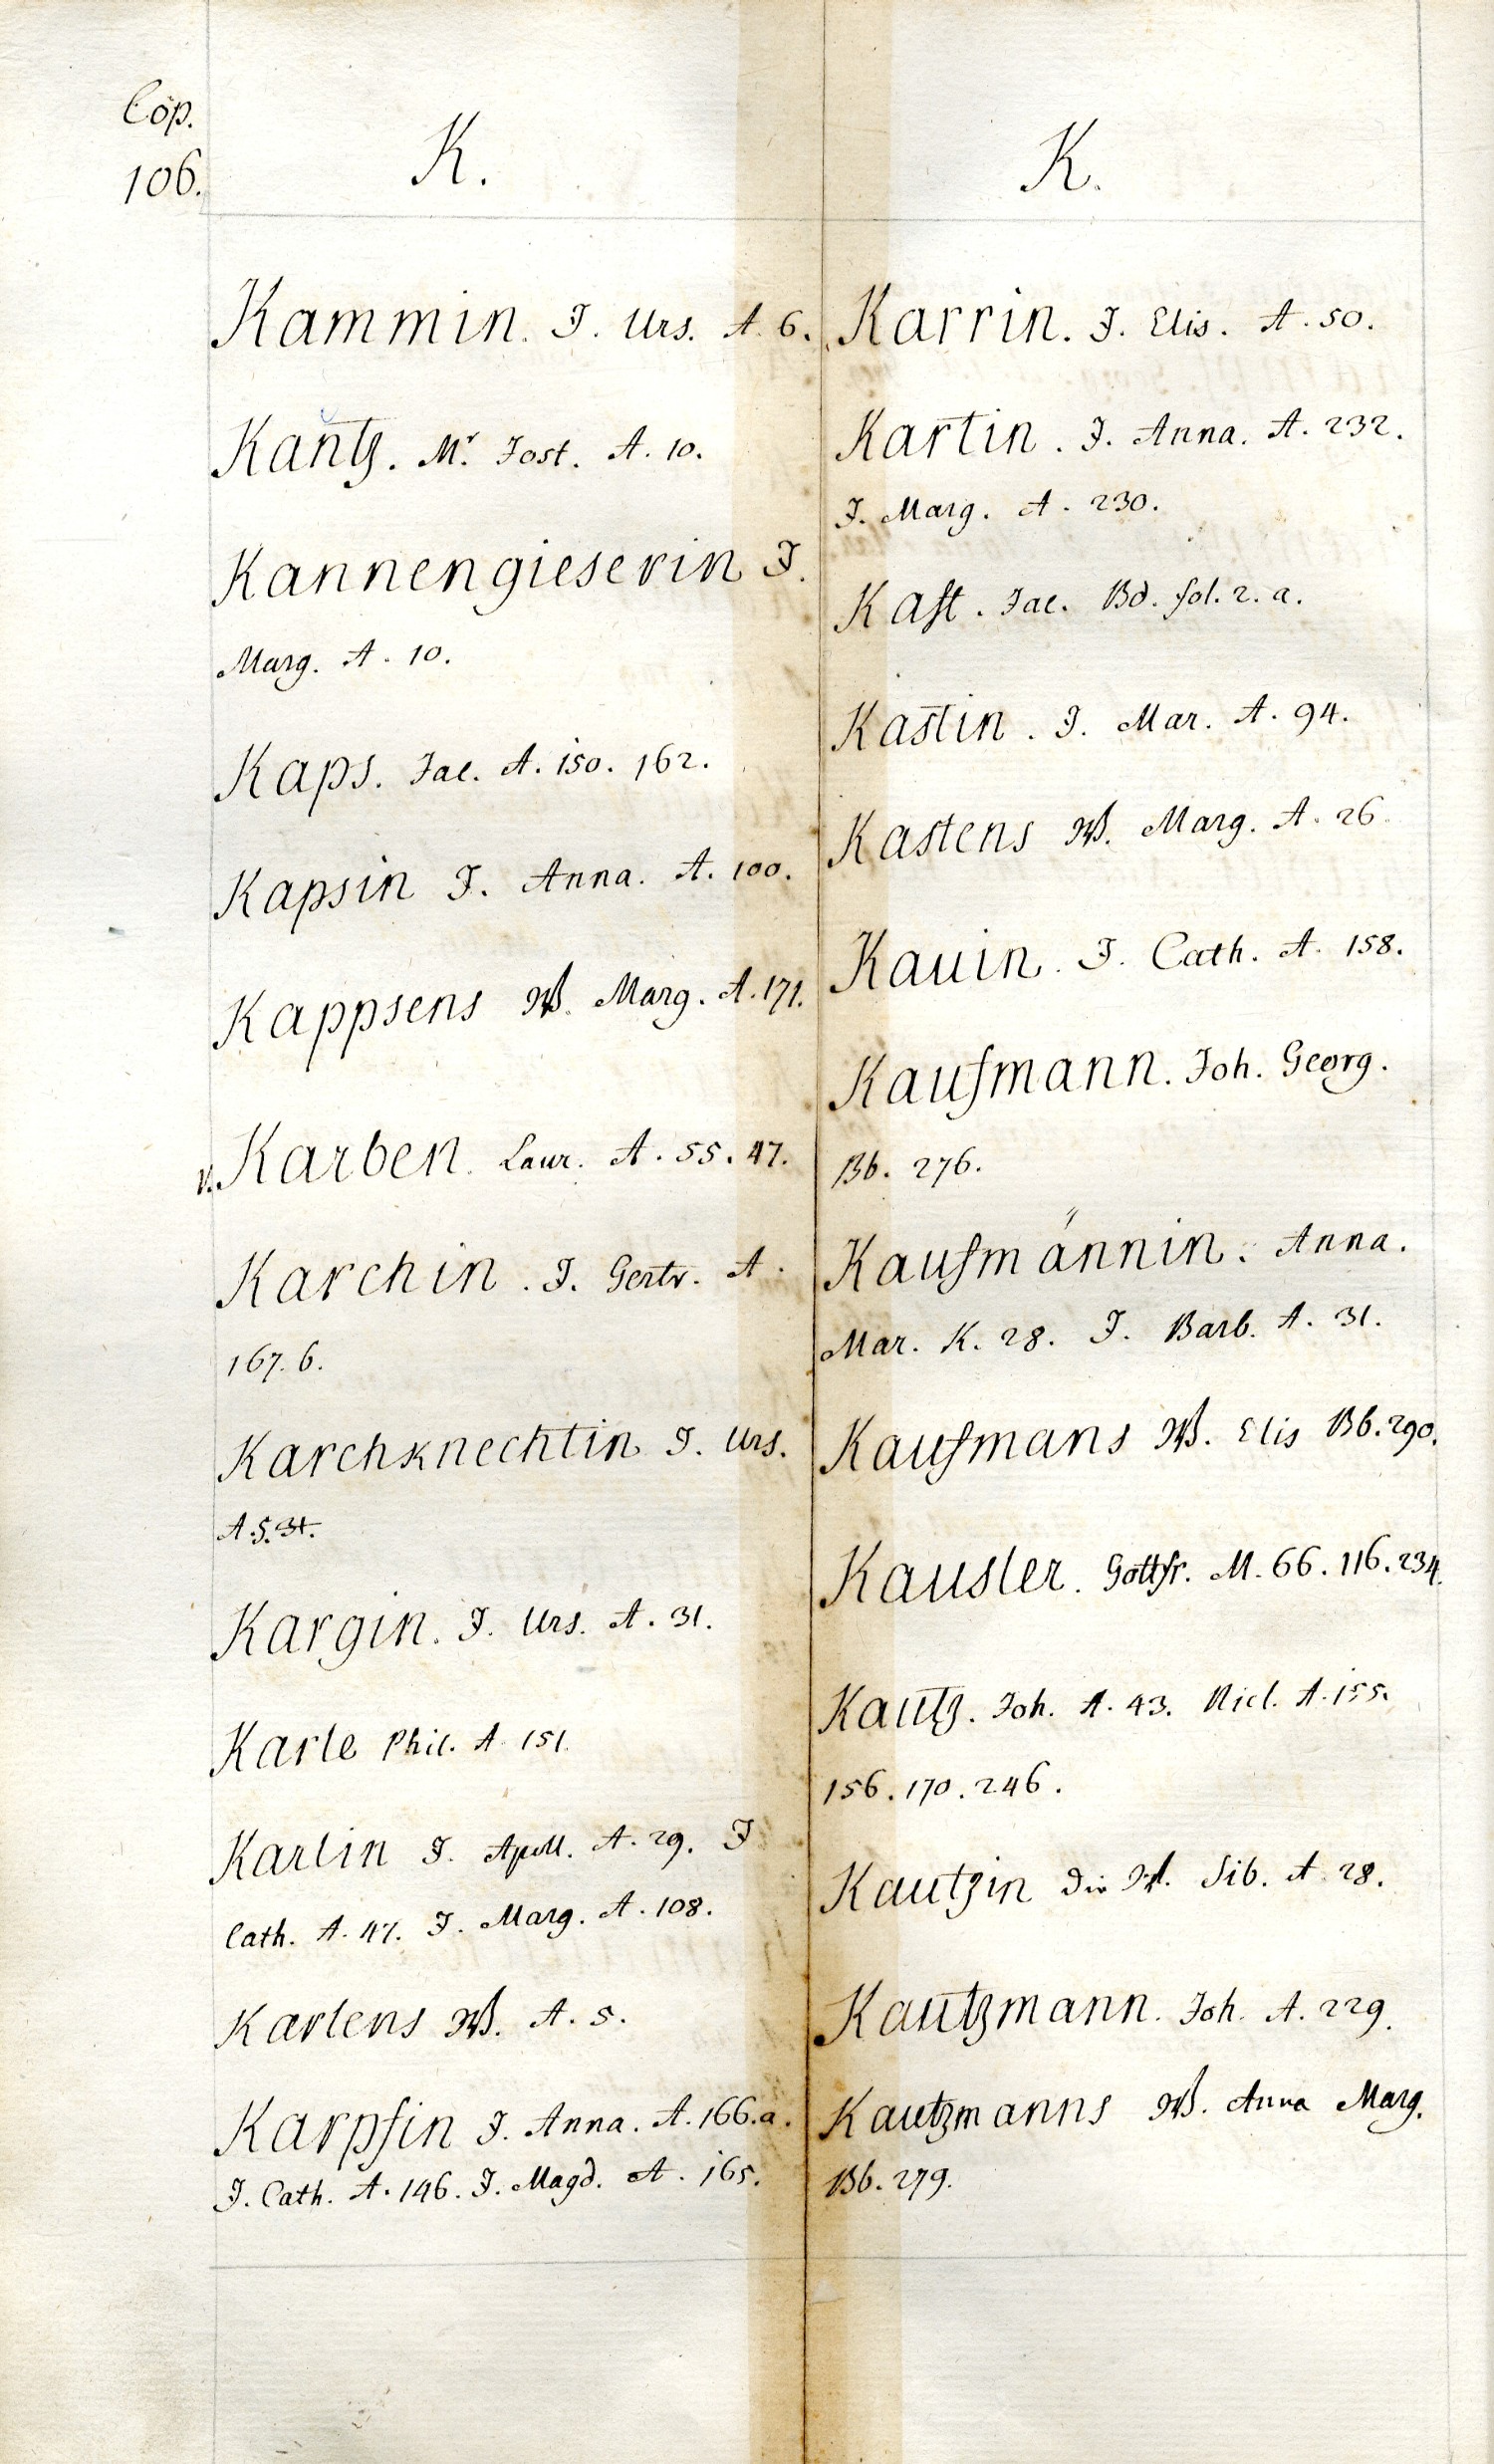 Cop.
106.
K.
Kammin. J. Urs. A. 6.
Kantz. Mr. Jost. A. 10.
Kannengieserin J.
Marg. A. 10.
Kaps. Jac. A. 150. 162.
Kapsin J. Anna. A. 100.
Kappsens W. Marg. A. 171.
v. Karben. Laur. A. 55. 47.
Karchin. J. Gertr. A.
167. 6.
Karchknechtin J. Urs.
A. 5.
Kargin. J. Urs. A. 31.
Karle Phil. A. 151.
Karlin J. Apoll. A. 29. J
Cath. A. 47. J. Marg. A. 108.
Karlens W. A. 5.
Karpfin J. Anna. A. 166. a.
J. Cath. A. 146. J. Magd. A. 165.
K.
Karrin. J. Elis. A. 50.
Kartin. J. Anna. A. 232.
J. Marg. A. 230.
Kast. Jac. Bd. fol. 2. a.
Kastin. J. Mar. A. 94.
Kastens W. Marg. A. 26.
Kauin. J. Cath. A. 158.
Kaufmann. Joh. Georg.
Bb. 276.
Kaufmännin. Anna.
Mar. K. 28. J. Barb. A. 31.
Kaufmans W. Elis Bb. 290.
Kausler. Gottfr. M. 66. 116. 234.
Kautz. Joh. A. 43. Nicl. A. 155.
156. 170. 246.
Kautzin die Sib. A. 28.
Kautzmann. Joh. A. 229.
Kautzmanns W. Anna Marg.
Bb. 279.